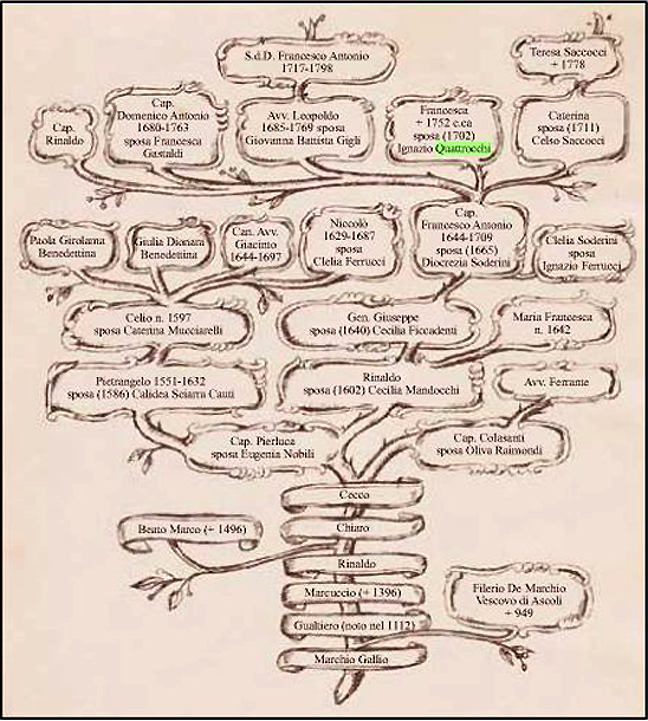 S.d.D. Francesco Antonio
1717-1798
Teresa Saccocci
+ 1778
Cap.
Rinaldo
Cap.
Domenico Antonio
1680-1763
sposa Francesca
Gastaldi
Avv. Leopoldo
1685-1769 sposa
Giovanna Battista Gigli
Francesca
+ 1752 c.ca
sposa (1702)
Ignazio Quattrocchi
Caterina
sposa (1711)
Celso Saccocci
Paola Girolama
Benedettina
Giulia Dionara
Benedettina
Can. Avv.
Giacinto
1644-1697
Niccolò
1629-1687
sposa
Clelia Ferrucci
Cap.
Francesco Antonio
1644-1709
sposa (1665)
Diocrezia Soderini
Clelia Soderini
sposa
Ignazio Ferrucci
Celio n. 1597
sposa Caterina Mucciarelli
Gen. Giuseppe
sposa (1640) Cecilia Ficcadenti
Maria Francesca
n. 1642
Pietrangelo 1551-1632
sposa (1586) Calidea Sciarra Cauti
Rinaldo
sposa (1602) Cecilia Mandocchi
Avv. Ferrante
Cap. Pierluca
sposa Eugenia Nobili
Cap. Colasanti
sposa Oliva Raimondi
Cecco
Beato Marco (+ 1496)
Chiaro
Rinaldo
Marcuccio (+ 1396)
Filerio De Marchio
Vescovo di Ascoli
+ 949
Gualtiero (noto nel 1112)
Marchio Gallio